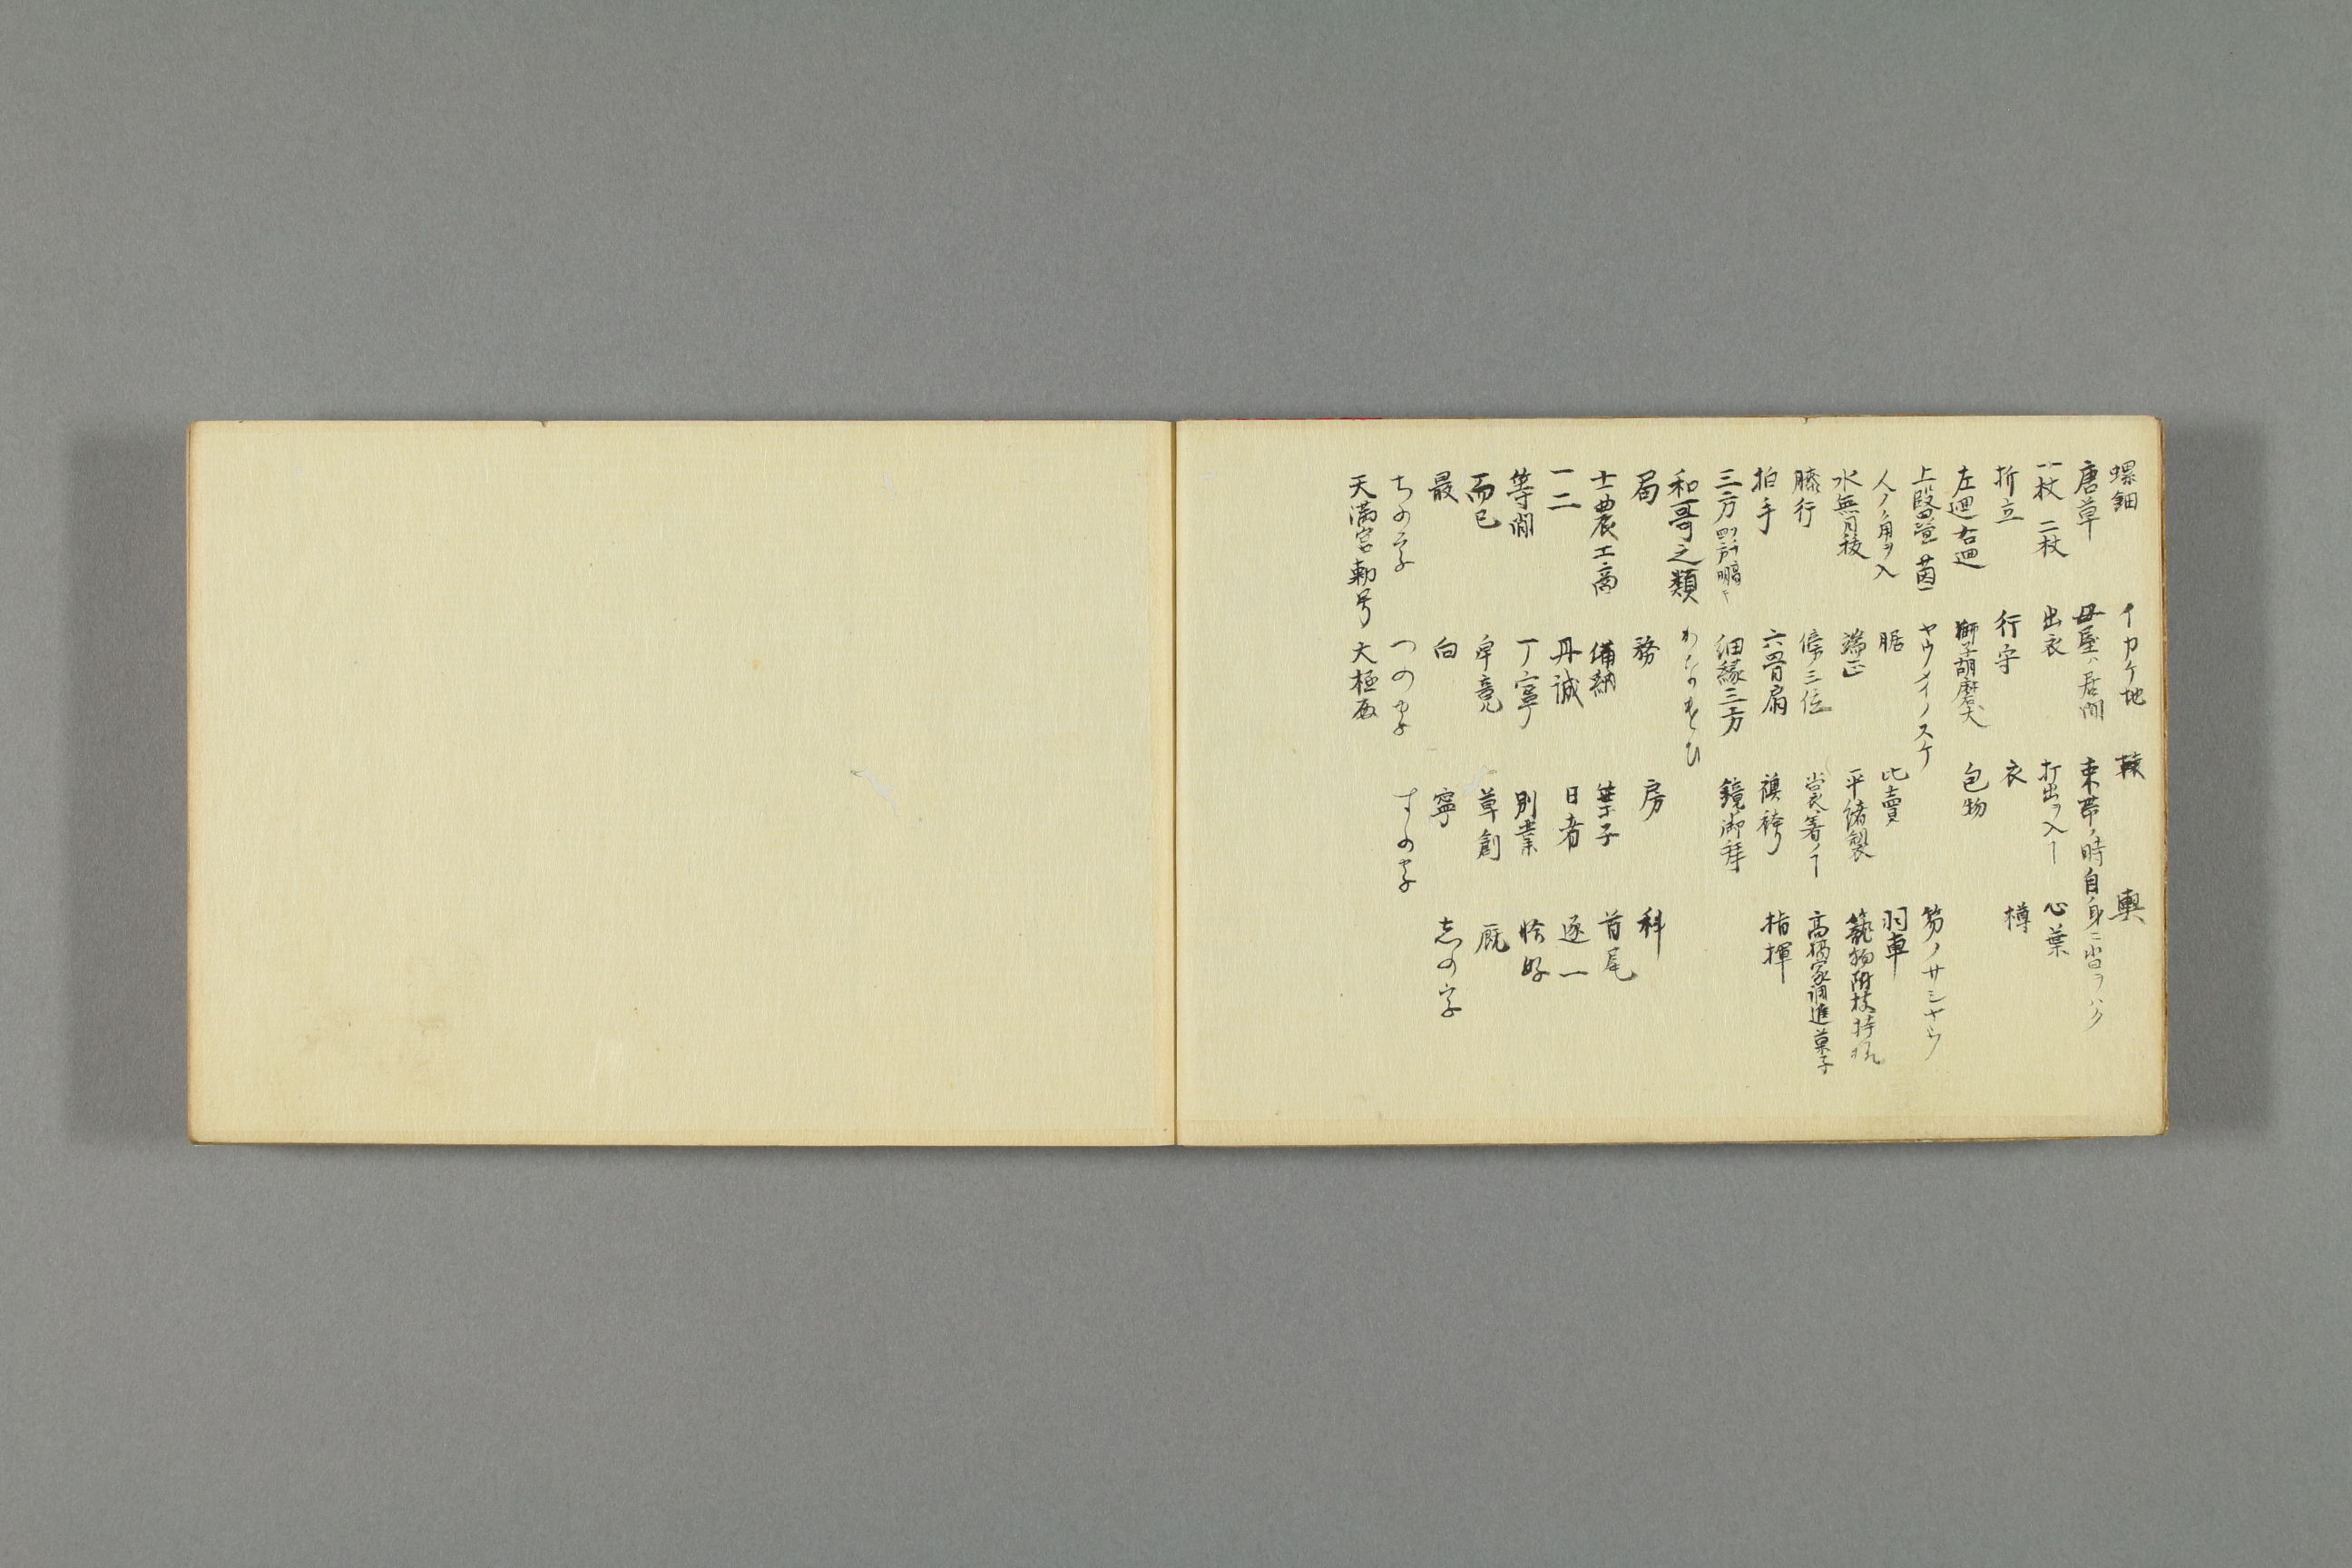 螺鈿 イカケ地 轅 輿
唐草 母屋ハ居間 束帯ノ時自身ニ沓ヲハク
一枚 二枚 出衣 打出ヲ入ー 心葉
折立 行字 衣 樽
左廻右廻 獅子胡麿犬 包物
上髷 茵 ヤウメイノスケ 笏ノサシヤウ
人ノ角ヲ入 胝 比賣 羽車
水無月祓 端正 平緒製 附枝持
膝行 三位 着ノー 高橋家調進菓子
拍手 六骨扇 襖袴 指揮
三方 細縁三方 鏡御拝
和哥之類
局 務 房 科
士農工商 備納 葉子 首尾
一二 丹誠 日者 逐一
等閑 丁寧 別業 恰好
而已 畢竟 草創 厩
最 向 寧 志の字
ちの字 つの字 すの字
天満宮勅号 大極殿